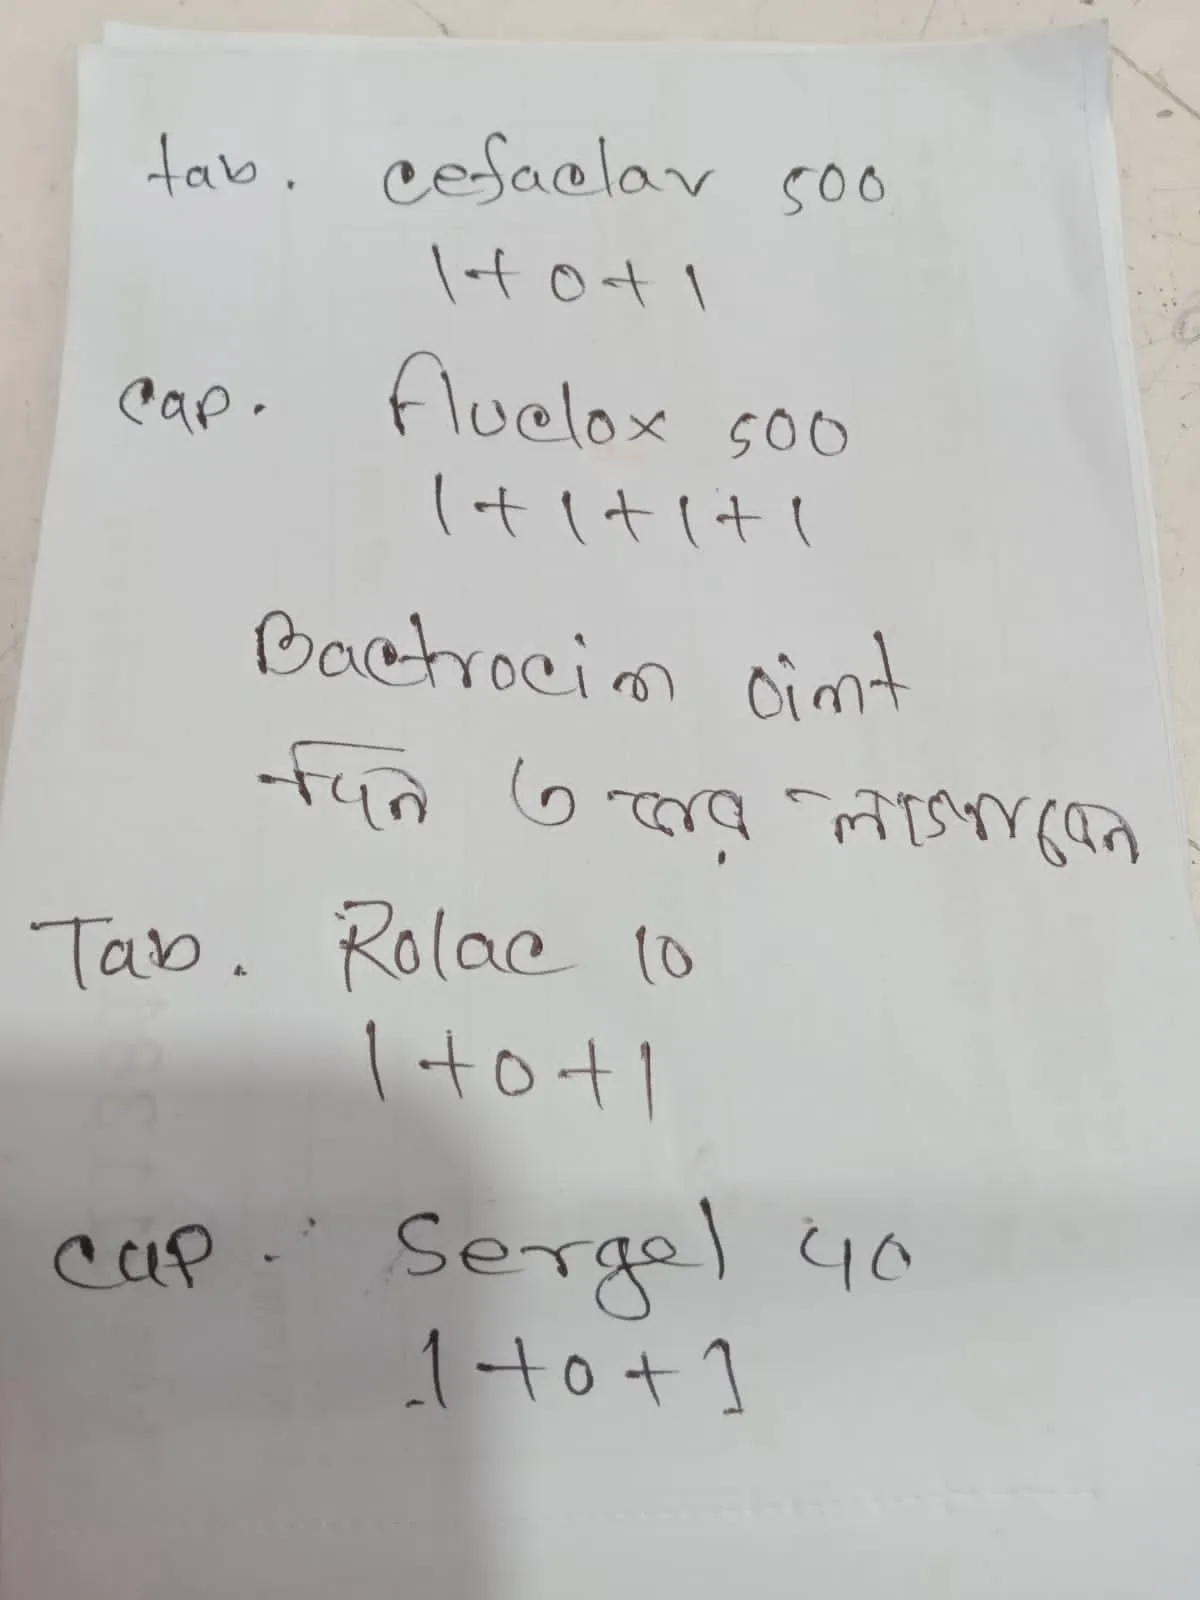 tab. cefaclar 500
1+0+1
cap. fluclox 500
1+1+1+1
Bactrocin oint
দিনে ৩ বার লাগাবেন
Tab. Rolac 10
1+0+1
cap. Sergel 40
1+0+1